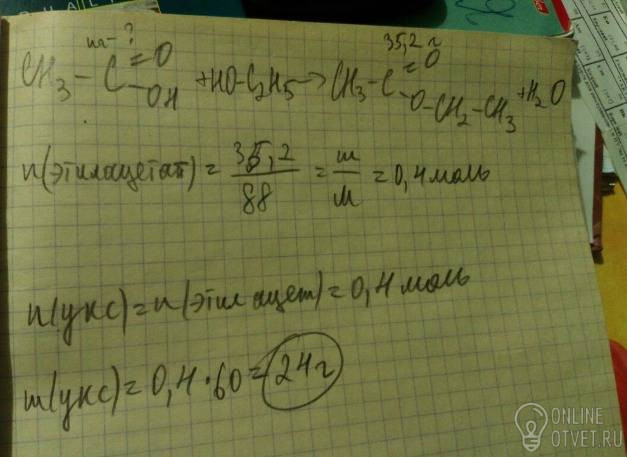 m-? 35,2 г
CH₃-C=O-OH + HO-C₂H₅ → CH₃-C=O-O-CH₂-CH₃ + H₂O
n(этилацетат) = 35,2/88 = m/M = 0,4 моль
n(укс) = n(этилацет) = 0,4 моль
m(укс) = 0,4·60 = 24 г
ONLINE
OTVET.RU